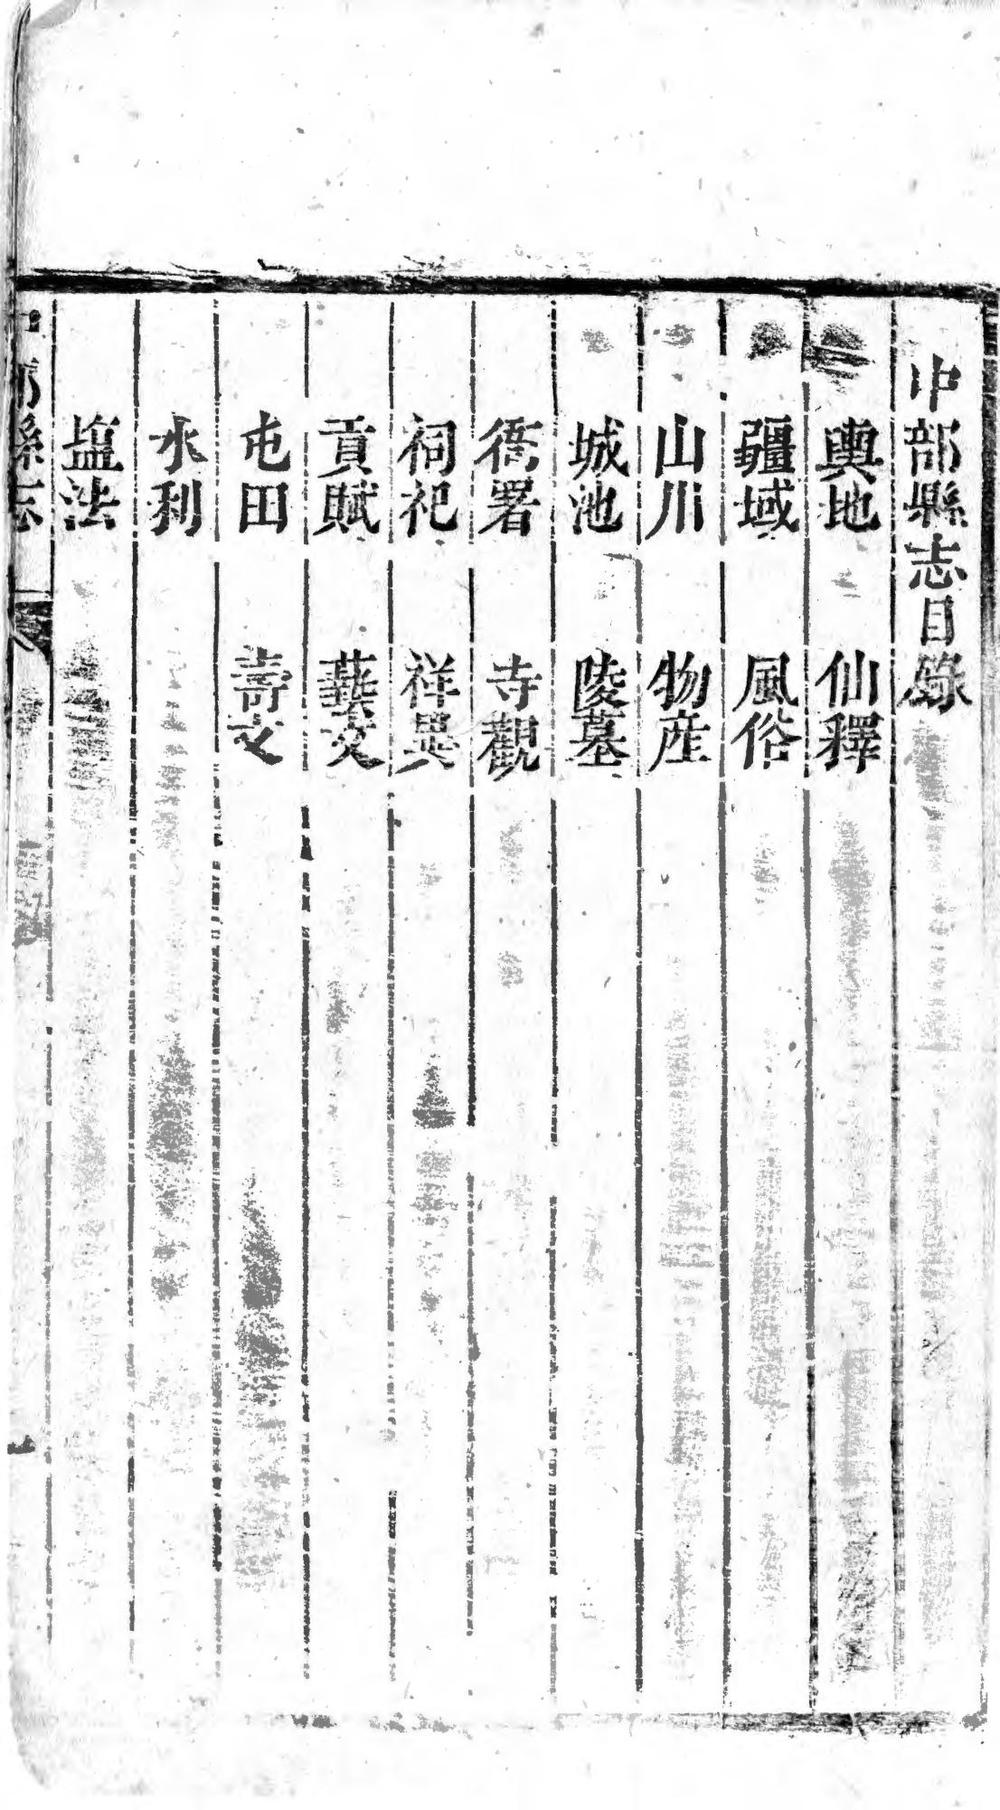 中部縣志目錄
輿地　仙釋
疆域　風俗
山川　物産
城池　陵墓
衙署　寺觀
祠祀　祥異
貢賦　藝文
屯田　壽文
水利
塩法
中部縣志